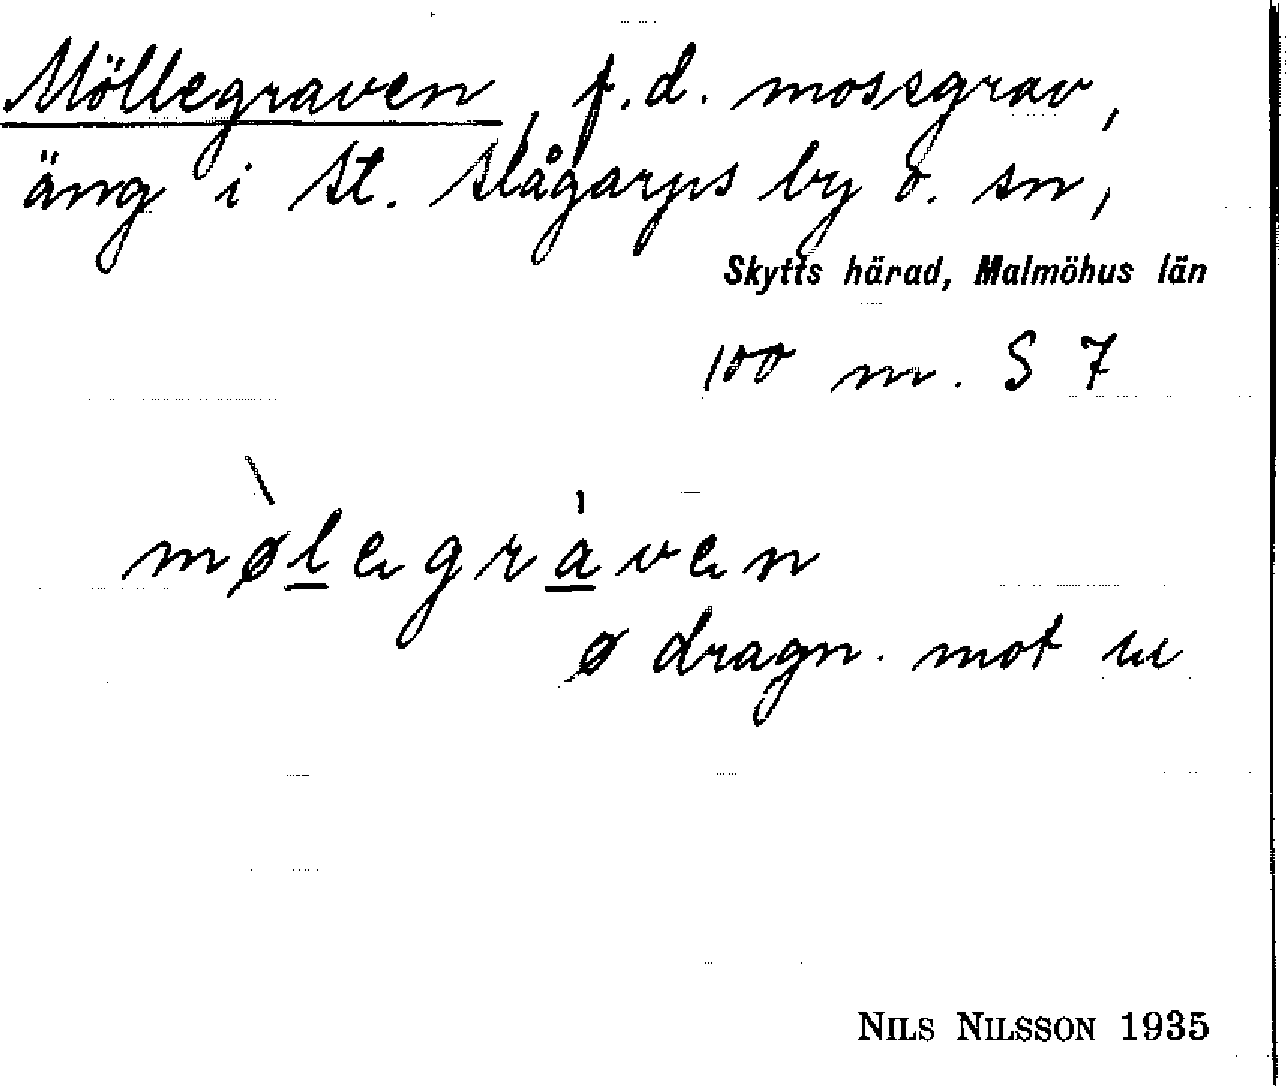 Möllegraven, f.d. mossgrav,
äng i St. Slågarps by o. sn,
Skytts härad, Malmöhus län
100 m. S 7
mølegràven
ø dragn. mot
NILS NILSSON 1935